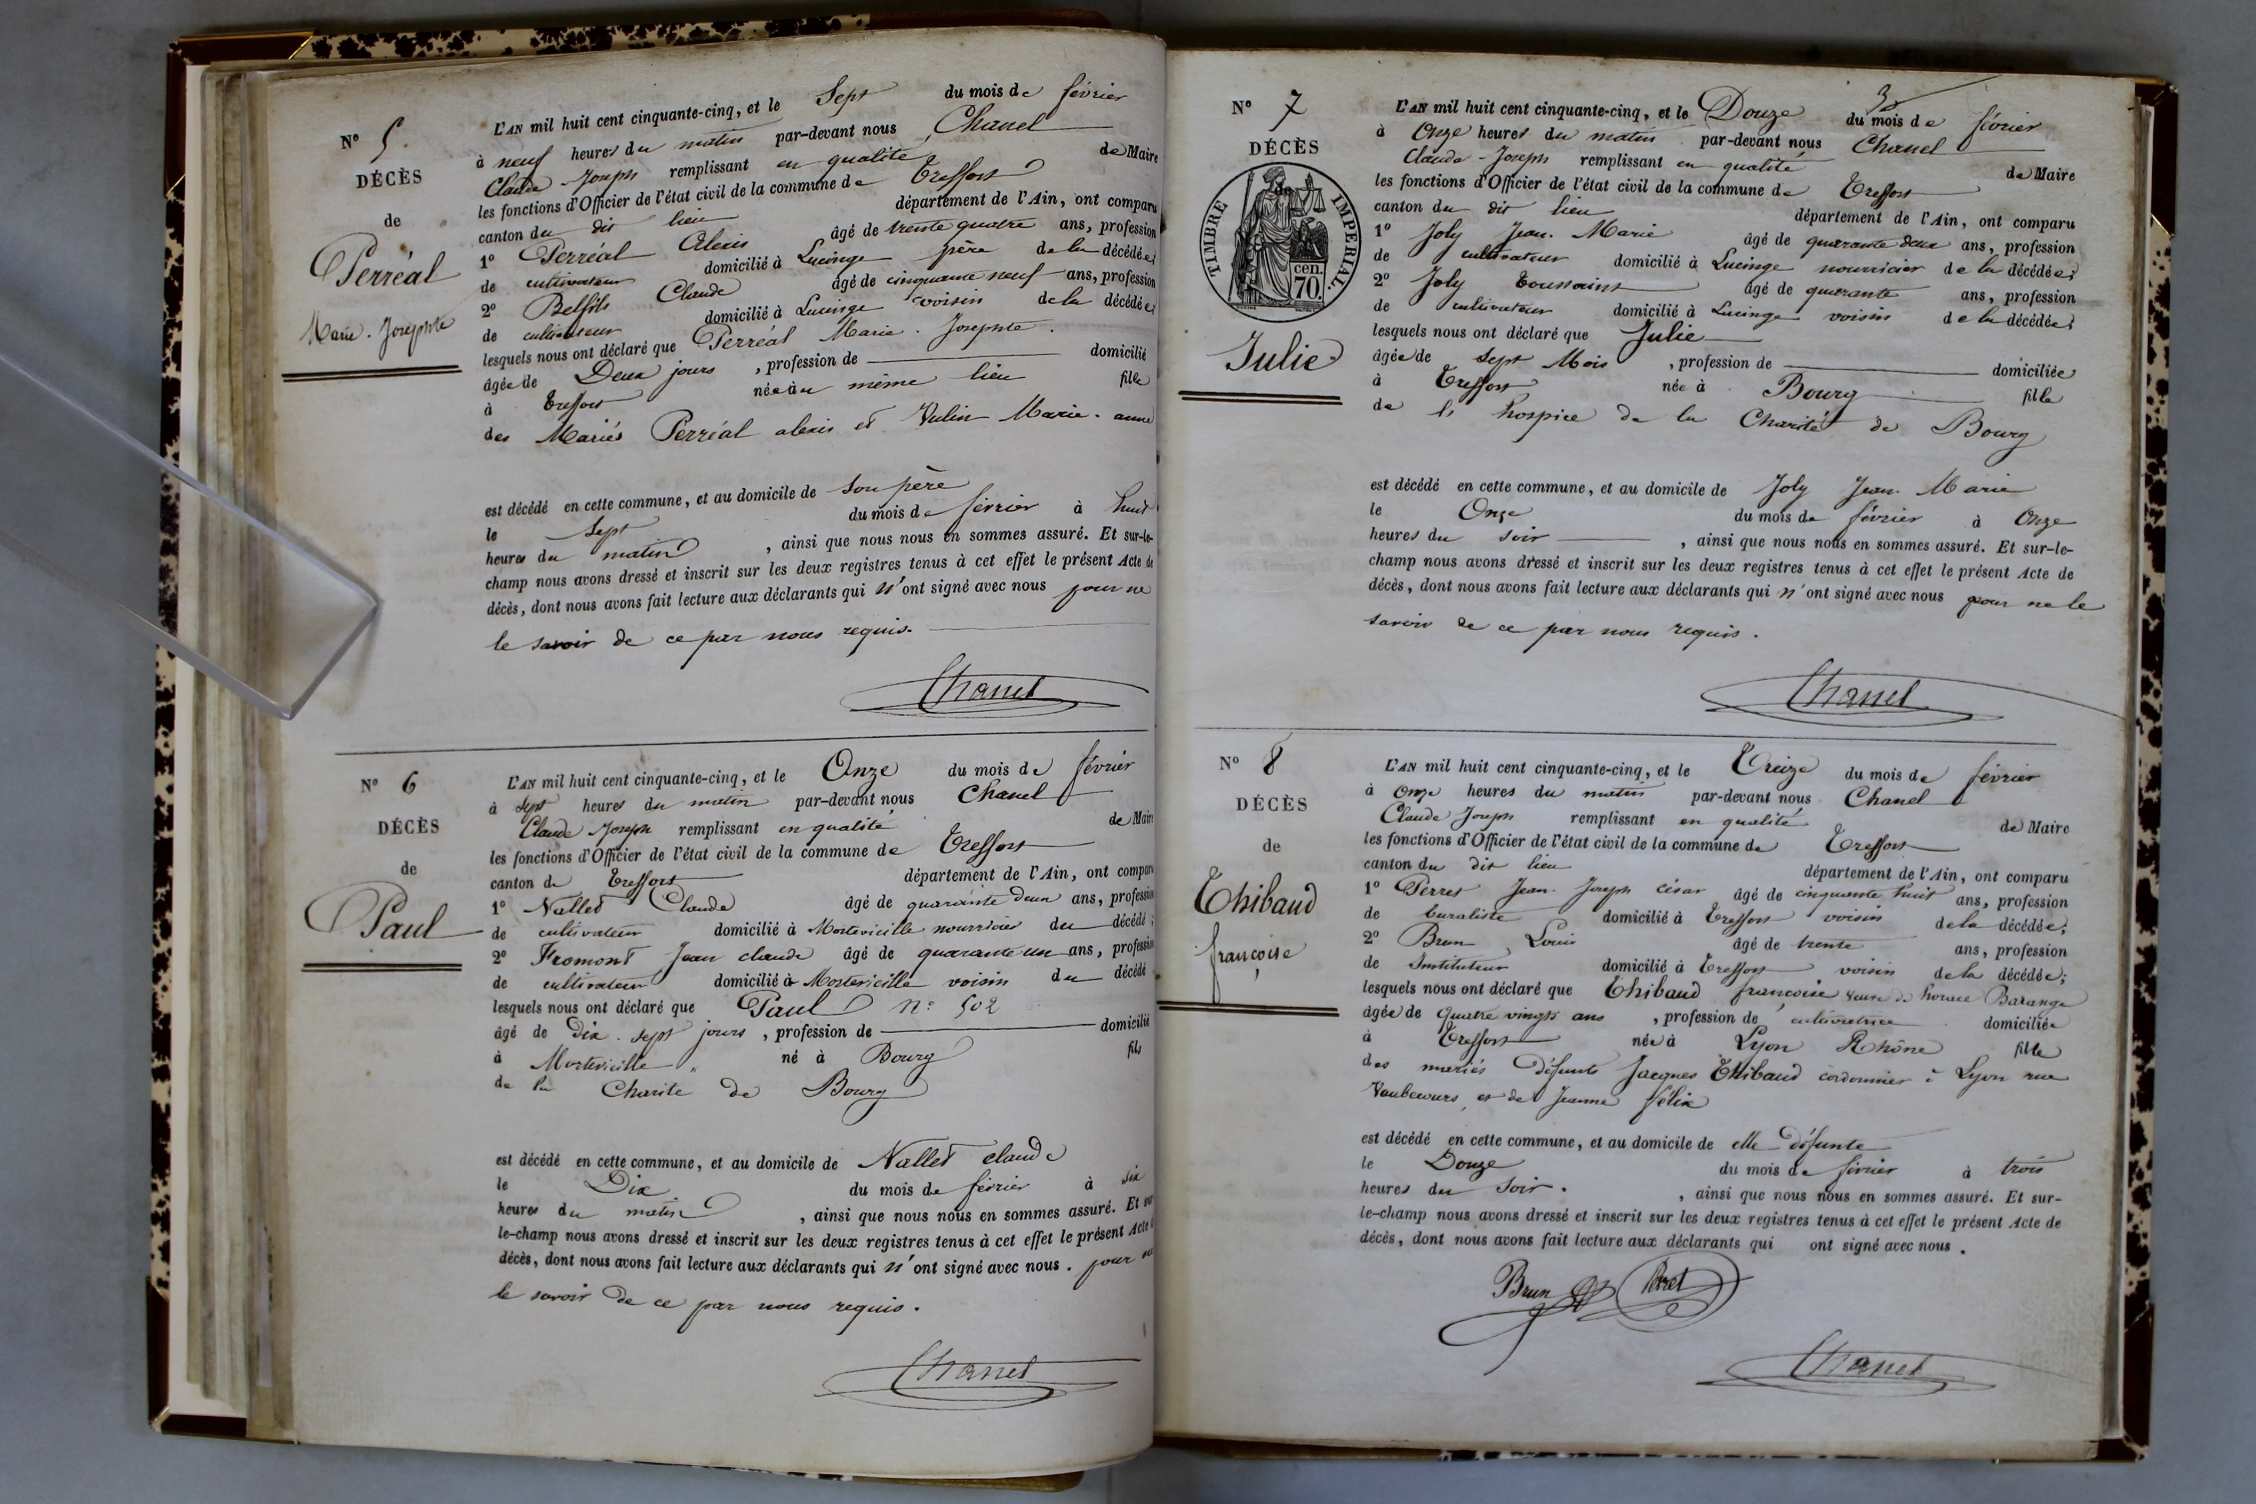 N° 5.
DÉCÈS
de
Perréal
Marie-Josephte
L'AN mil huit cent cinquante-cinq, et le Sept du mois de février
à neuf heures du matin par-devant nous Chanel
Claude-Joseph remplissant en qualité de Maire
les fonctions d'Officier de l'état civil de la commune de Treffort
canton du dit lieu département de l'Ain, ont comparu
1° Perréal Alexis âgé de trente quatre ans, profession
de cultivateur domicilié à Lucinge père de la décédée;
2° Belfils Claude âgé de cinquante neuf ans, profession
de cultivateur domicilié à Lucinge voisin de la décédée;
lesquels nous ont déclaré que Perréal Marie-Josephte.
âgée de Deux jours, profession de domicilié
à Treffort née au même lieu fille
des Mariés Perréal alexis et Vulin Marie-anne
est décédé en cette commune, et au domicile de son père
le Sept du mois de février à huit
heures du matin, ainsi que nous nous en sommes assuré. Et sur-le-
champ nous avons dressé et inscrit sur les deux registres tenus à cet effet le présent Acte de
décès, dont nous avons fait lecture aux déclarants qui n'ont signé avec nous pour ne
le savoir de ce par nous requis.
Chanel
N° 6
DÉCÈS
de
Paul
L'AN mil huit cent cinquante-cinq, et le Onze du mois de février
à sept heures du matin par-devant nous Chanel
Claude Joseph remplissant en qualité de Maire
les fonctions d'Officier de l'état civil de la commune de Treffort
canton de Treffort département de l'Ain, ont comparu
1° Nallet Claude âgé de quarante deux ans, profession
de cultivateur domicilié à Montevieille nourricier du décédé;
2° Fromont Jean claude âgé de quarante un ans, profession
de cultivateur domicilié à voisin du décédé
lesquels nous ont déclaré que Paul n° 502
âgé de Dix-sept jours, profession de domicilié
à né à Bourg fils
de la Charité de Bourg
est décédé en cette commune, et au domicile de Nallet claude
le Dix du mois de février à six
heures du matin, ainsi que nous nous en sommes assuré. Et sur-
le-champ nous avons dressé et inscrit sur les deux registres tenus à cet effet le présent Acte de
décès, dont nous avons fait lecture aux déclarants qui n'ont signé avec nous. pour ne
le savoir de ce par nous requis.
Chanel
30
N° 7
DÉCÈS
TIMBRE IMPERIAL.
cen.
70.
Julie
L'AN mil huit cent cinquante-cinq, et le Douze du mois de février
à Onze heures du matin par-devant nous Chanel
Claude-Joseph remplissant en qualité de Maire
les fonctions d'Officier de l'état civil de la commune de Treffort
canton du dit lieu département de l'Ain, ont comparu
1° Joly Jean-Marie âgé de quarante deux ans, profession
de cultivateur domicilié à Lucinge nourricier de la décédée;
2° Joly Toussaint âgé de quarante ans, profession
de cultivateur domicilié à Lucinge voisin de la décédée;
lesquels nous ont déclaré que Julie
âgée de sept Mois, profession de domiciliée
à Treffort née à Bourg fille
de l'hospice de la Charité de Bourg
est décédé en cette commune, et au domicile de Joly Jean-Marie
le Onze du mois de février à Onze
heures du soir, ainsi que nous nous en sommes assuré. Et sur-le-
champ nous avons dressé et inscrit sur les deux registres tenus à cet effet le présent Acte de
décès, dont nous avons fait lecture aux déclarants qui n'ont signé avec nous pour ne le
savoir de ce par nous requis.
Chanel
N° 8
DÉCÈS
de
Thibaud
françoise
L'AN mil huit cent cinquante-cinq, et le Treize du mois de février
à onze heures du matin par-devant nous Chanel
Claude Joseph remplissant en qualité de Maire
les fonctions d'Officier de l'état civil de la commune de Treffort
canton du dit lieu département de l'Ain, ont comparu
1° Perret Jean-Joseph césar âgé de cinquante huit ans, profession
de buraliste domicilié à Treffort voisin de la décédée;
2° Brun Louis âgé de trente ans, profession
de Instituteur domicilié à Treffort voisin de la décédée;
lesquels nous ont déclaré que Thibaud françoise veuve de horace Barange
âgée de quatre vingts ans, profession de cultivatrice domiciliée
à Treffort née à Lyon Rhône fille
des mariés défunts Jacques Thibaud cordonnier à Lyon rue
Vaubecours, et de Jeanne félix
est décédé en cette commune, et au domicile de elle défunte
le Douze du mois de février à trois
heures du soir., ainsi que nous nous en sommes assuré. Et sur-
le-champ nous avons dressé et inscrit sur les deux registres tenus à cet effet le présent Acte de
décès, dont nous avons fait lecture aux déclarants qui ont signé avec nous.
Brun Perret
Chanel